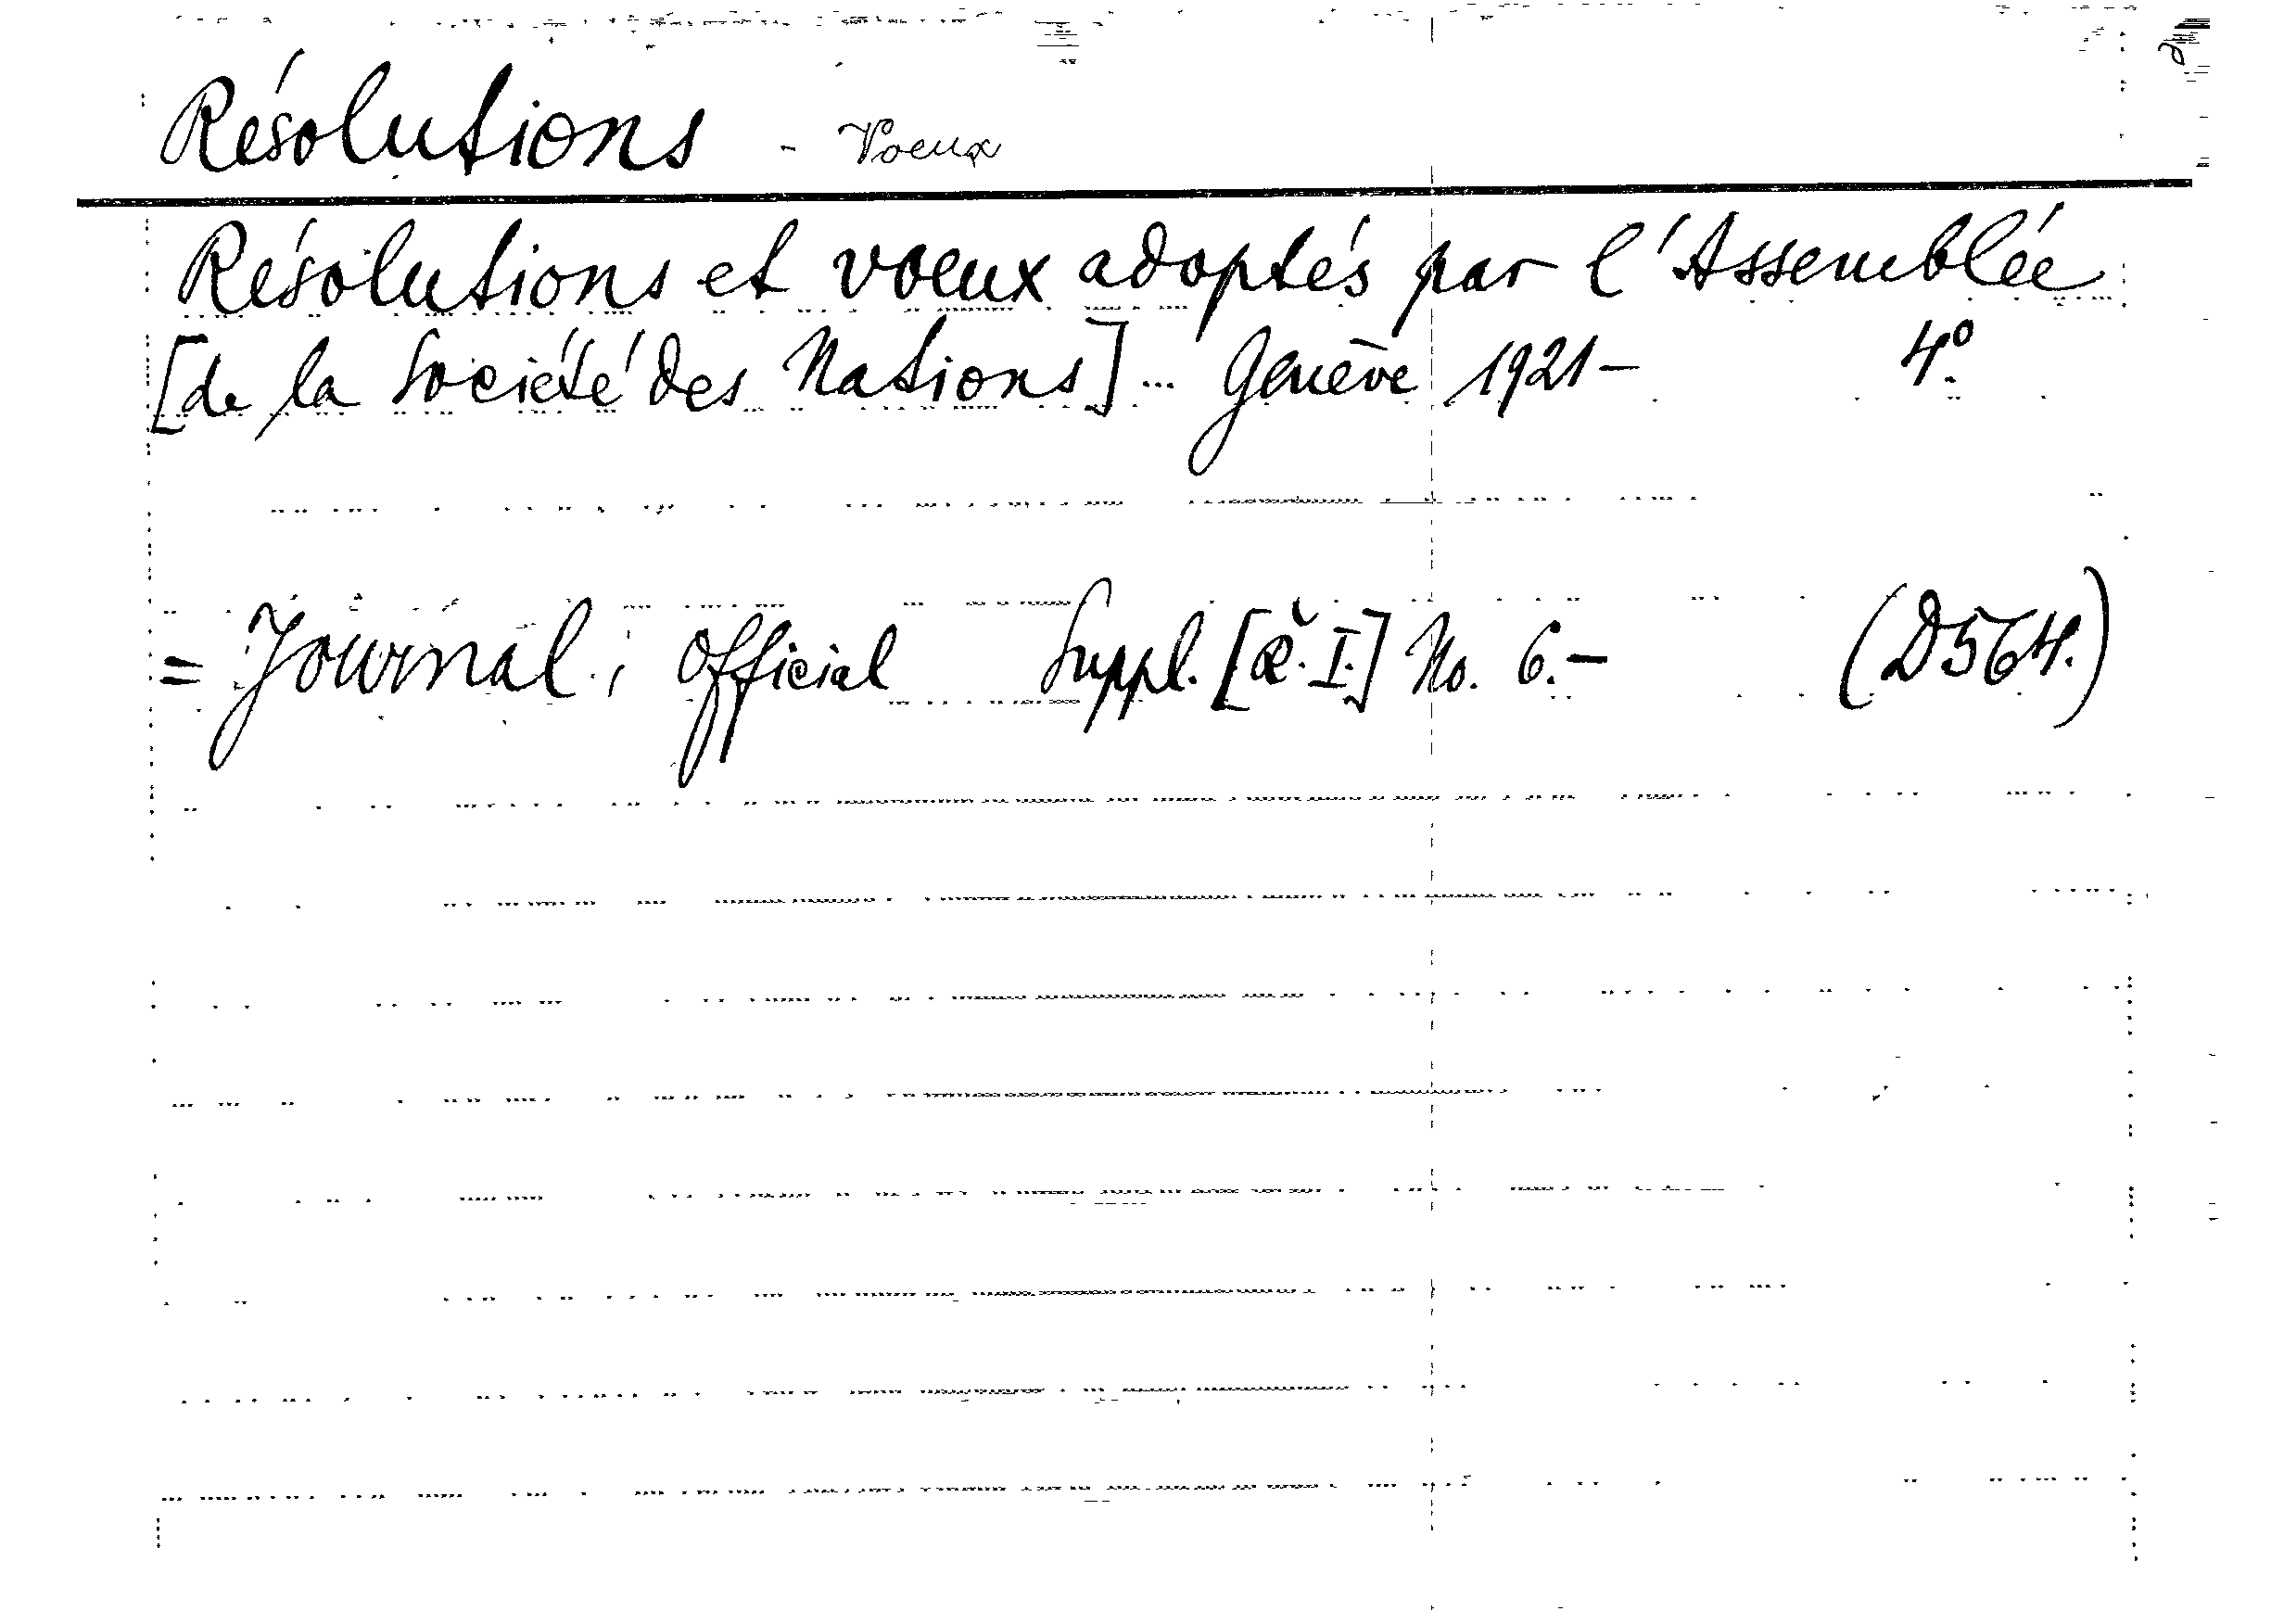 Résolutions - Voeux
Résolutions et voeux adoptés par l'Assemblée
[de la Société des Nations]... Genève 1921- 4o.
= Journal, Official Suppl. [I.] No. 6.- (D564.)